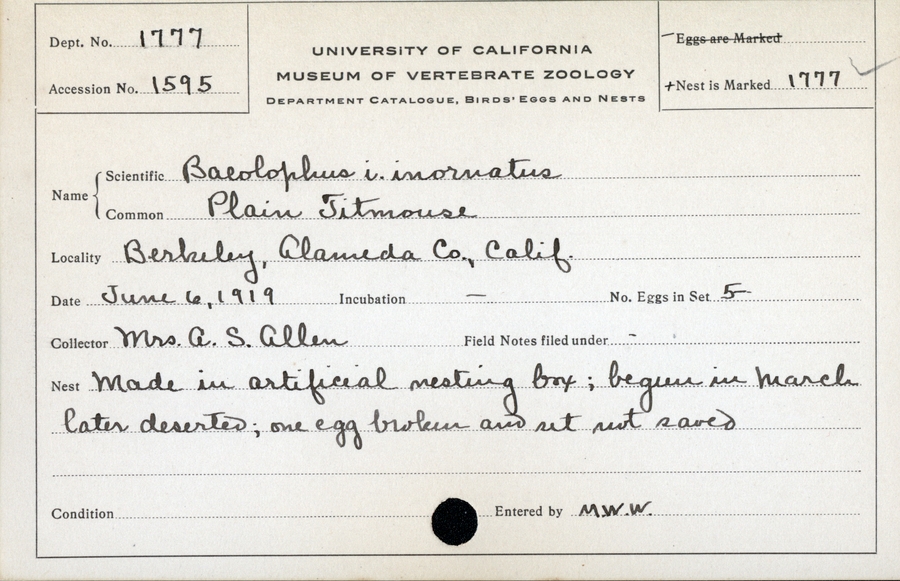 Dept. No. 1777
Accession No. 1595
UNIVERSITY OF CALIFORNIA
MUSEUM OF VERTEBRATE ZOOLOGY
DEPARTMENT CATALOGUE, BIRDS' EGGS AND NESTS
Eggs are Marked
+Nest is Marked 1777
Name
Scientific Baeolophus i. inornatus
Common Plain Titmouse
Locality Berkeley, Alameda Co., Calif.
Date June 6, 1919 Incubation — No. Eggs in Set 5
Collector Mrs. A. S. Allen Field Notes filed under -
Nest Made in artificial nesting box; begun in March
later deserted; one egg broken and set not saved
Condition Entered by M.W.W.